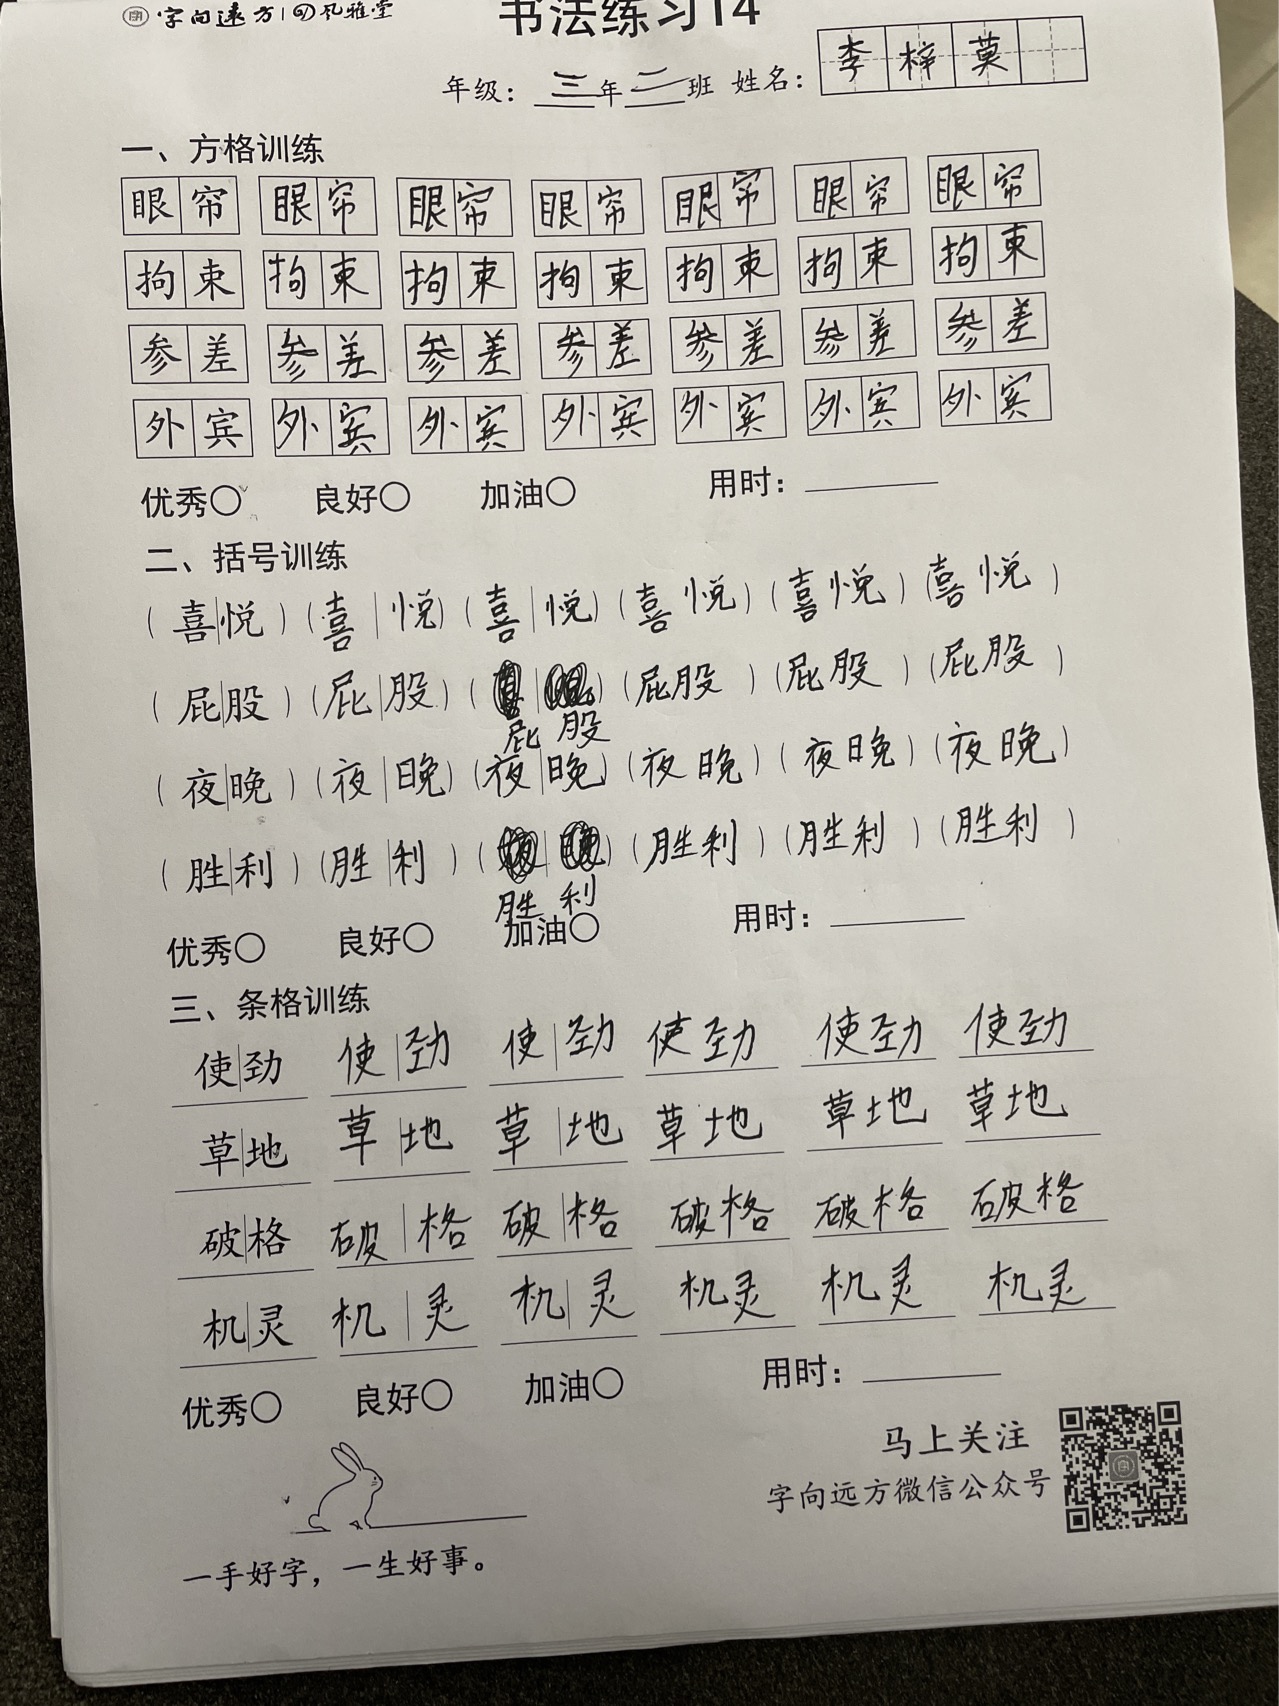 字向远方 | 风雅堂
书法练习14
年级：三年二班 姓名：李梓萸
一、方格训练
眼帘 眼帘 眼帘 眼帘 眼帘 眼帘 眼帘
拘束 拘束 拘束 拘束 拘束 拘束 拘束
参差 参差 参差 参差 参差 参差 参差
外宾 外宾 外宾 外宾 外宾 外宾 外宾
优秀○ 良好○ 加油○ 用时：
二、括号训练
（喜|悦）（喜|悦）（喜|悦）（喜悦）（喜悦）（喜悦）
（屁|股）（屁|股）（ | ）（屁股）（屁股）（屁股）
屁股
（夜|晚）（夜|晚）（夜|晚）（夜晚）（夜晚）（夜晚）
（胜|利）（胜|利）（ | ）（胜利）（胜利）（胜利）
胜利
优秀○ 良好○ 加油○ 用时：
三、条格训练
使|劲 使|劲 使|劲 使劲 使劲 使劲
草|地 草|地 草|地 草地 草地 草地
破|格 破|格 破|格 破格 破格 破格
机|灵 机|灵 机|灵 机灵 机灵 机灵
优秀○ 良好○ 加油○ 用时：
马上关注
字向远方微信公众号
一手好字，一生好事。